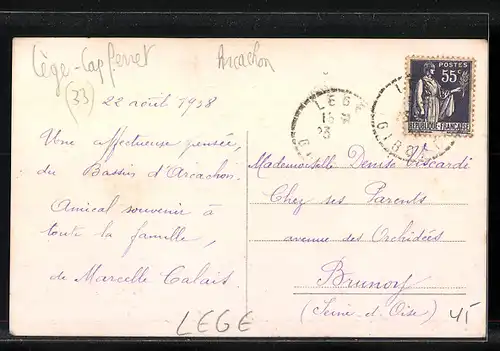 Lège-Cap ferret
(33)
Arcachon
22 août 1938
Une affectueuse pensée,
du Bassin d'Arcachon.
Amical souvenir à
toute la famille,
de Marcelle Calais.
LEGE
LEGE
15
23
POSTES
55c
REPUBLIQUE FRANÇAISE
Mademoiselle Denise Viscardi
Chez ses Parents
avenue des Orchidées
Brunoy
(Seine-et-Oise)
45